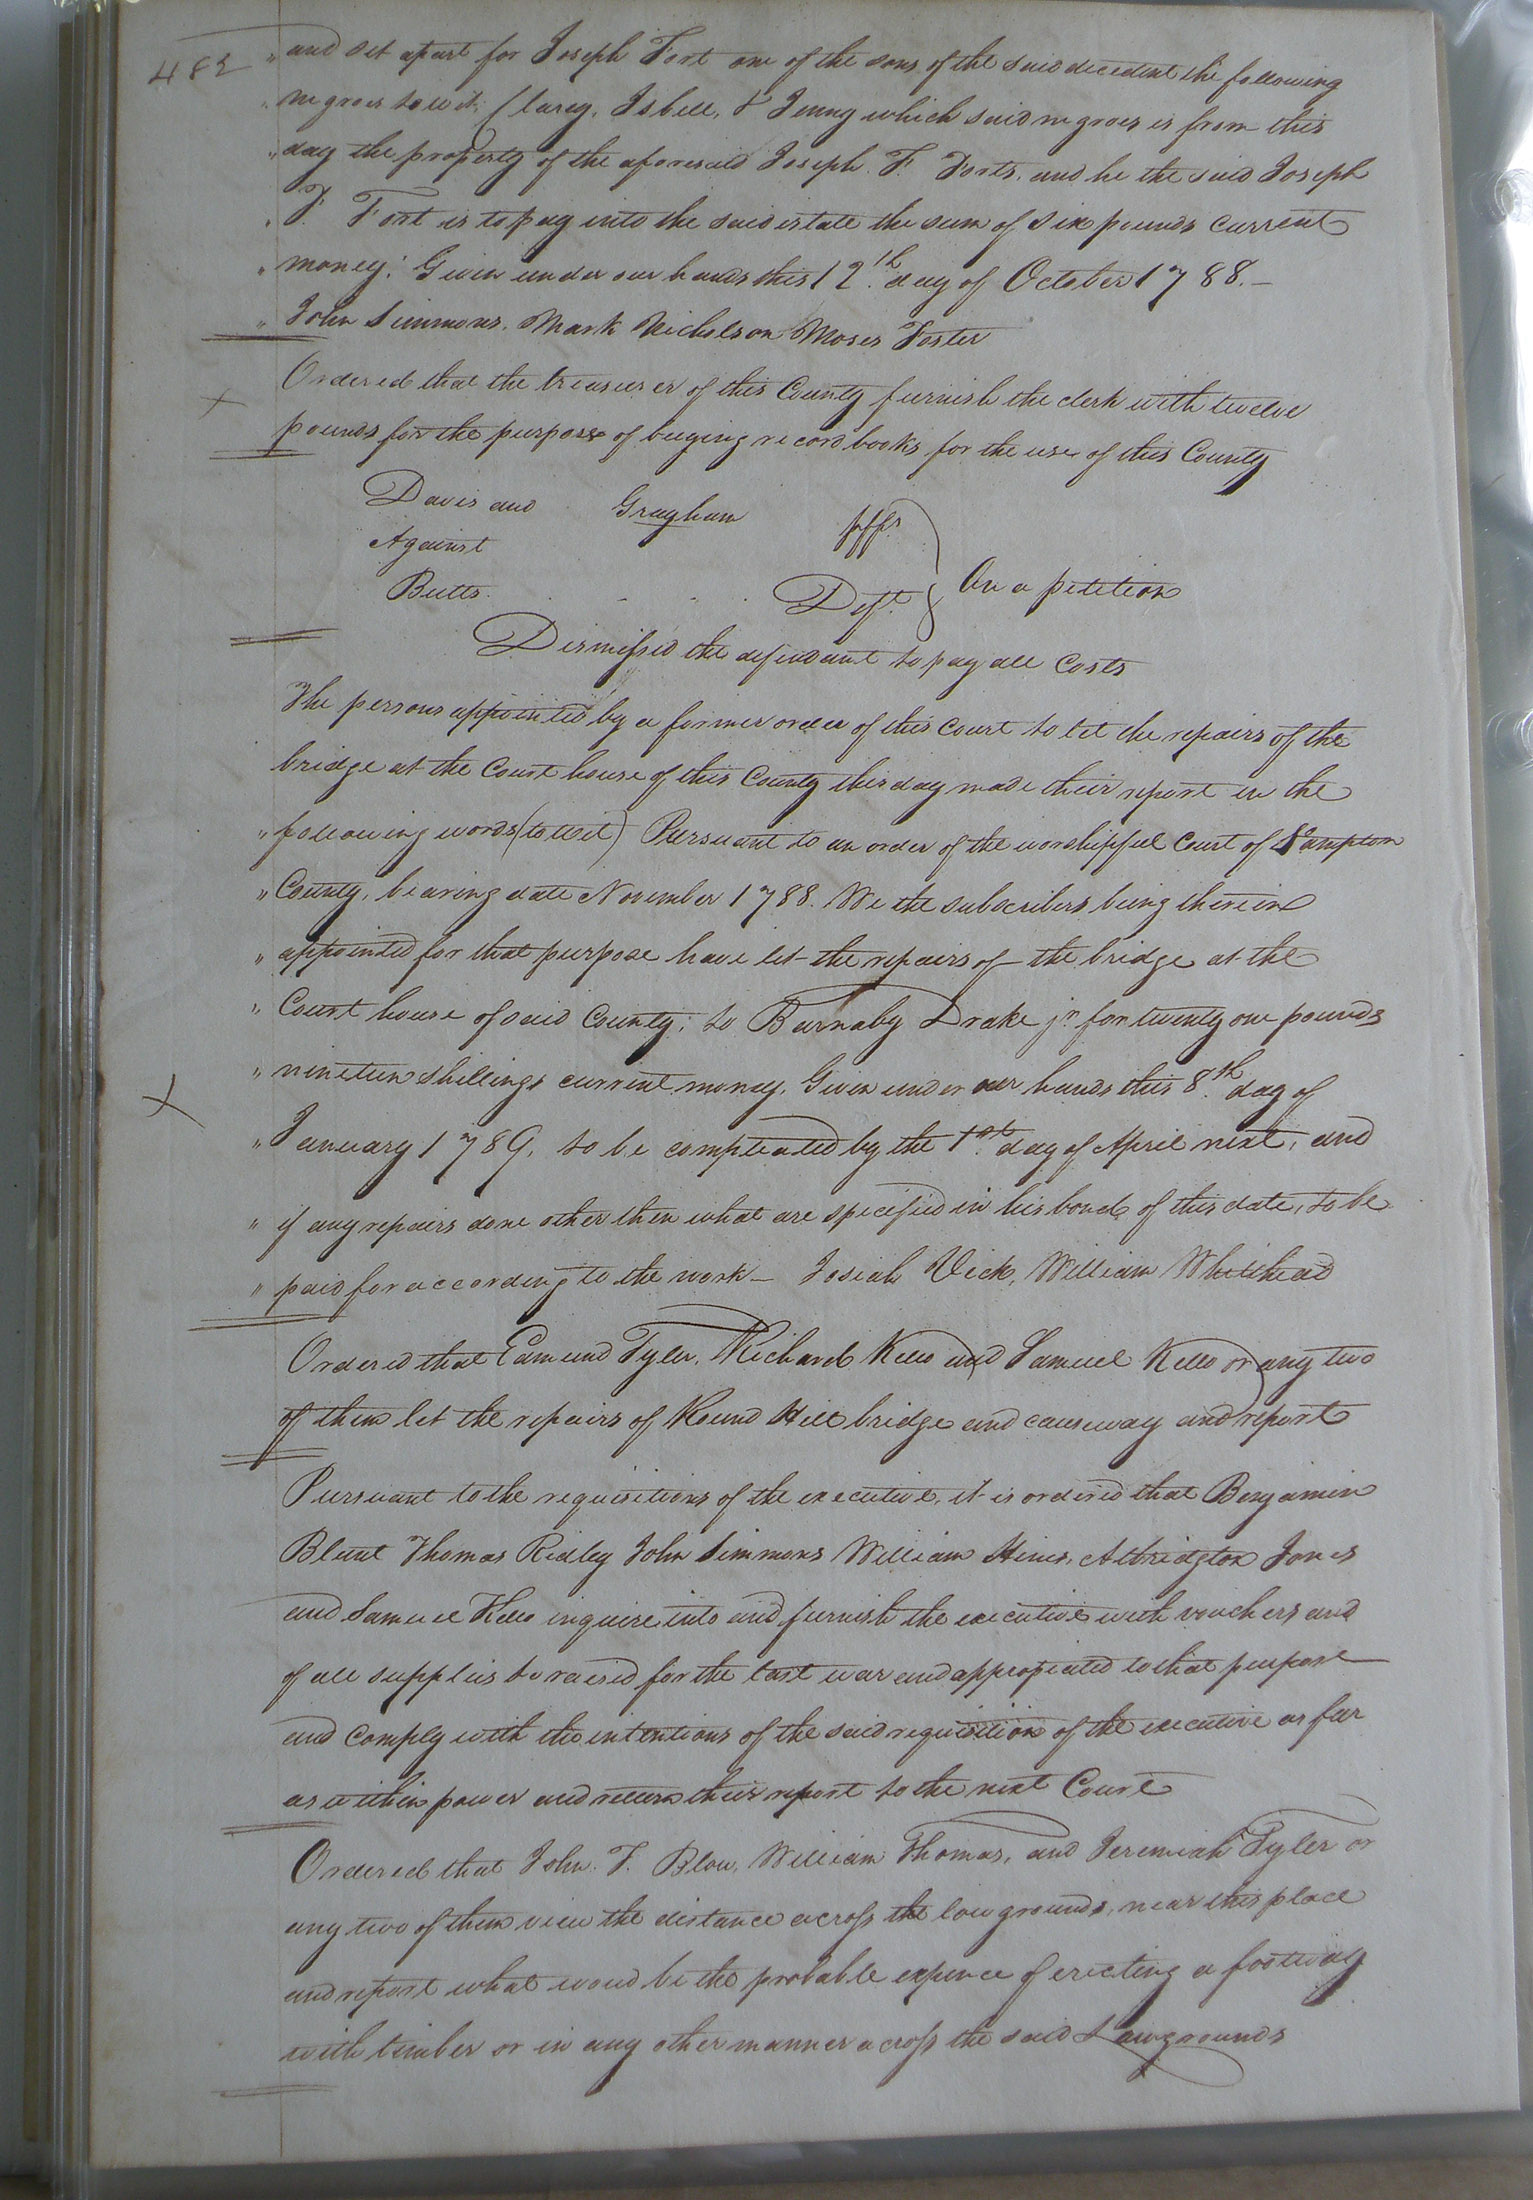 482
" and set apart for Joseph Fort one of the sons of the said decedent the following
" negroes to wit, Clarey, Isbell, & Jenny which said negroes is from this
" day the property of the aforesaid Joseph. F. Forts, and he the said Joseph
" F. Fort is to pay into the said estate the sum of six pounds current
" money; Given under our hands this 12th. day of October 1788.—
" John Simmons, Mark Nicholson Moses Foster
Ordered that the treasurer of this County furnish the clerk with twelve
pounds for the purpose of buying record books for the use of this County
Davis and Grayham pffs
Against
Butts. Deft. On a petition
Dismissed the defendant to pay all Costs
The persons appointed by a former order of this Court to let the repairs of the
bridge at the Court house of this County this day made their report in the
" following words (to wit) Pursuant to an order of the worshipful Court of Sampton
" County, bearing date November 1788. We the subscribers being therein
" appointed for that purpose have let the repairs of the bridge at the
" Court house of said County; to Barnaby Drake jr. for twenty one pounds
" nineteen shillings current money, Given under our hands this 8th. day of
" January 1789, to be compleated by the 1st. day of April next, and
" if any repairs done other then what are specified in his bond of this date, to be
" paid for according to the work — Josiah Vick, William Whitehead
Ordered that Edmund Tyler, Richard Kello and Samuel Kello or any two
of them let the repairs of Round Hill bridge and causeway and report
Pursuant to the requisitions of the executive, it is ordered that Benjamin
Blunt Thomas Ridley John Simmons William Hines, Albridgton Jones
and Samuel Kello inquire into and furnish the executive with vouchers and
of all supplies to raised for the last war and appropiated to that purpose
and comply with the intentions of the said requisition of the executive as far
as within power and return their report to the next Court
Ordered that John. T. Blow, William Thomas, and Jeremiah Tyler or
any two of them view the distance across the low grounds, near this place
and report what woud be the probable expence of erecting a footway
with timber or in any other manner across the said Lowgrounds